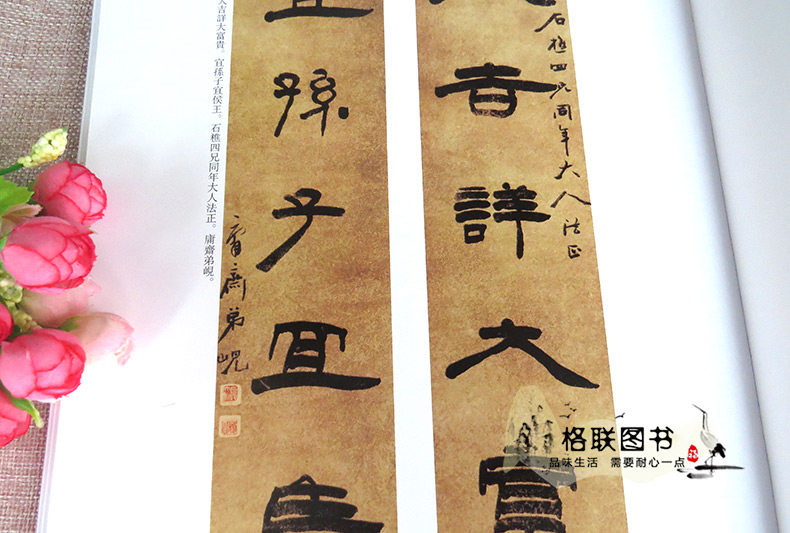 石樵四兄同年大人法正
吉詳大富
孫子宜
庸齋弟峴
大吉詳大富貴。宜孫子宜侯王。石樵四兄同年大人法正。庸齋弟峴。
格联图书
品味生活 需要耐心一点